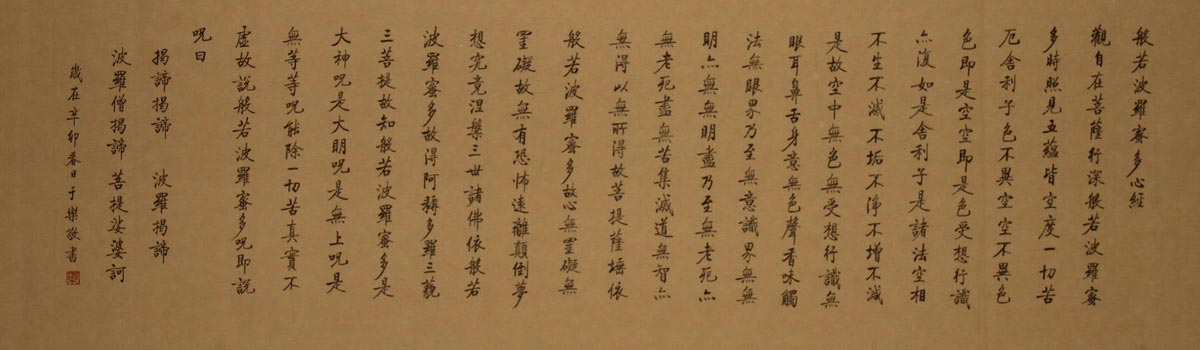 般若波羅蜜多心經
觀自在菩薩行深般若波羅蜜
多時照見五蘊皆空度一切苦
厄舍利子色不異空空不異色
色即是空空即是色受想行識
亦復如是舍利子是諸法空相
不生不滅不垢不淨不增不減
是故空中無色無受想行識無
眼耳鼻舌身意無色聲香味觸
法無眼界乃至無意識界無無
明亦無無明盡乃至無老死亦
無老死盡無苦集滅道無智亦
無得以無所得故菩提薩埵依
般若波羅蜜多故心無罣礙無
罣礙故無有恐怖遠離顛倒夢
想究竟涅槃三世諸佛依般若
波羅蜜多故得阿耨多羅三藐
三菩提故知般若波羅蜜多是
大神呪是大明呪是無上呪是
無等等呪能除一切苦真實不
虛故說般若波羅蜜多呪即說
呪曰
揭諦揭諦 波羅揭諦
波羅僧揭諦 菩提娑婆訶
歲在辛卯春日于樂敬書